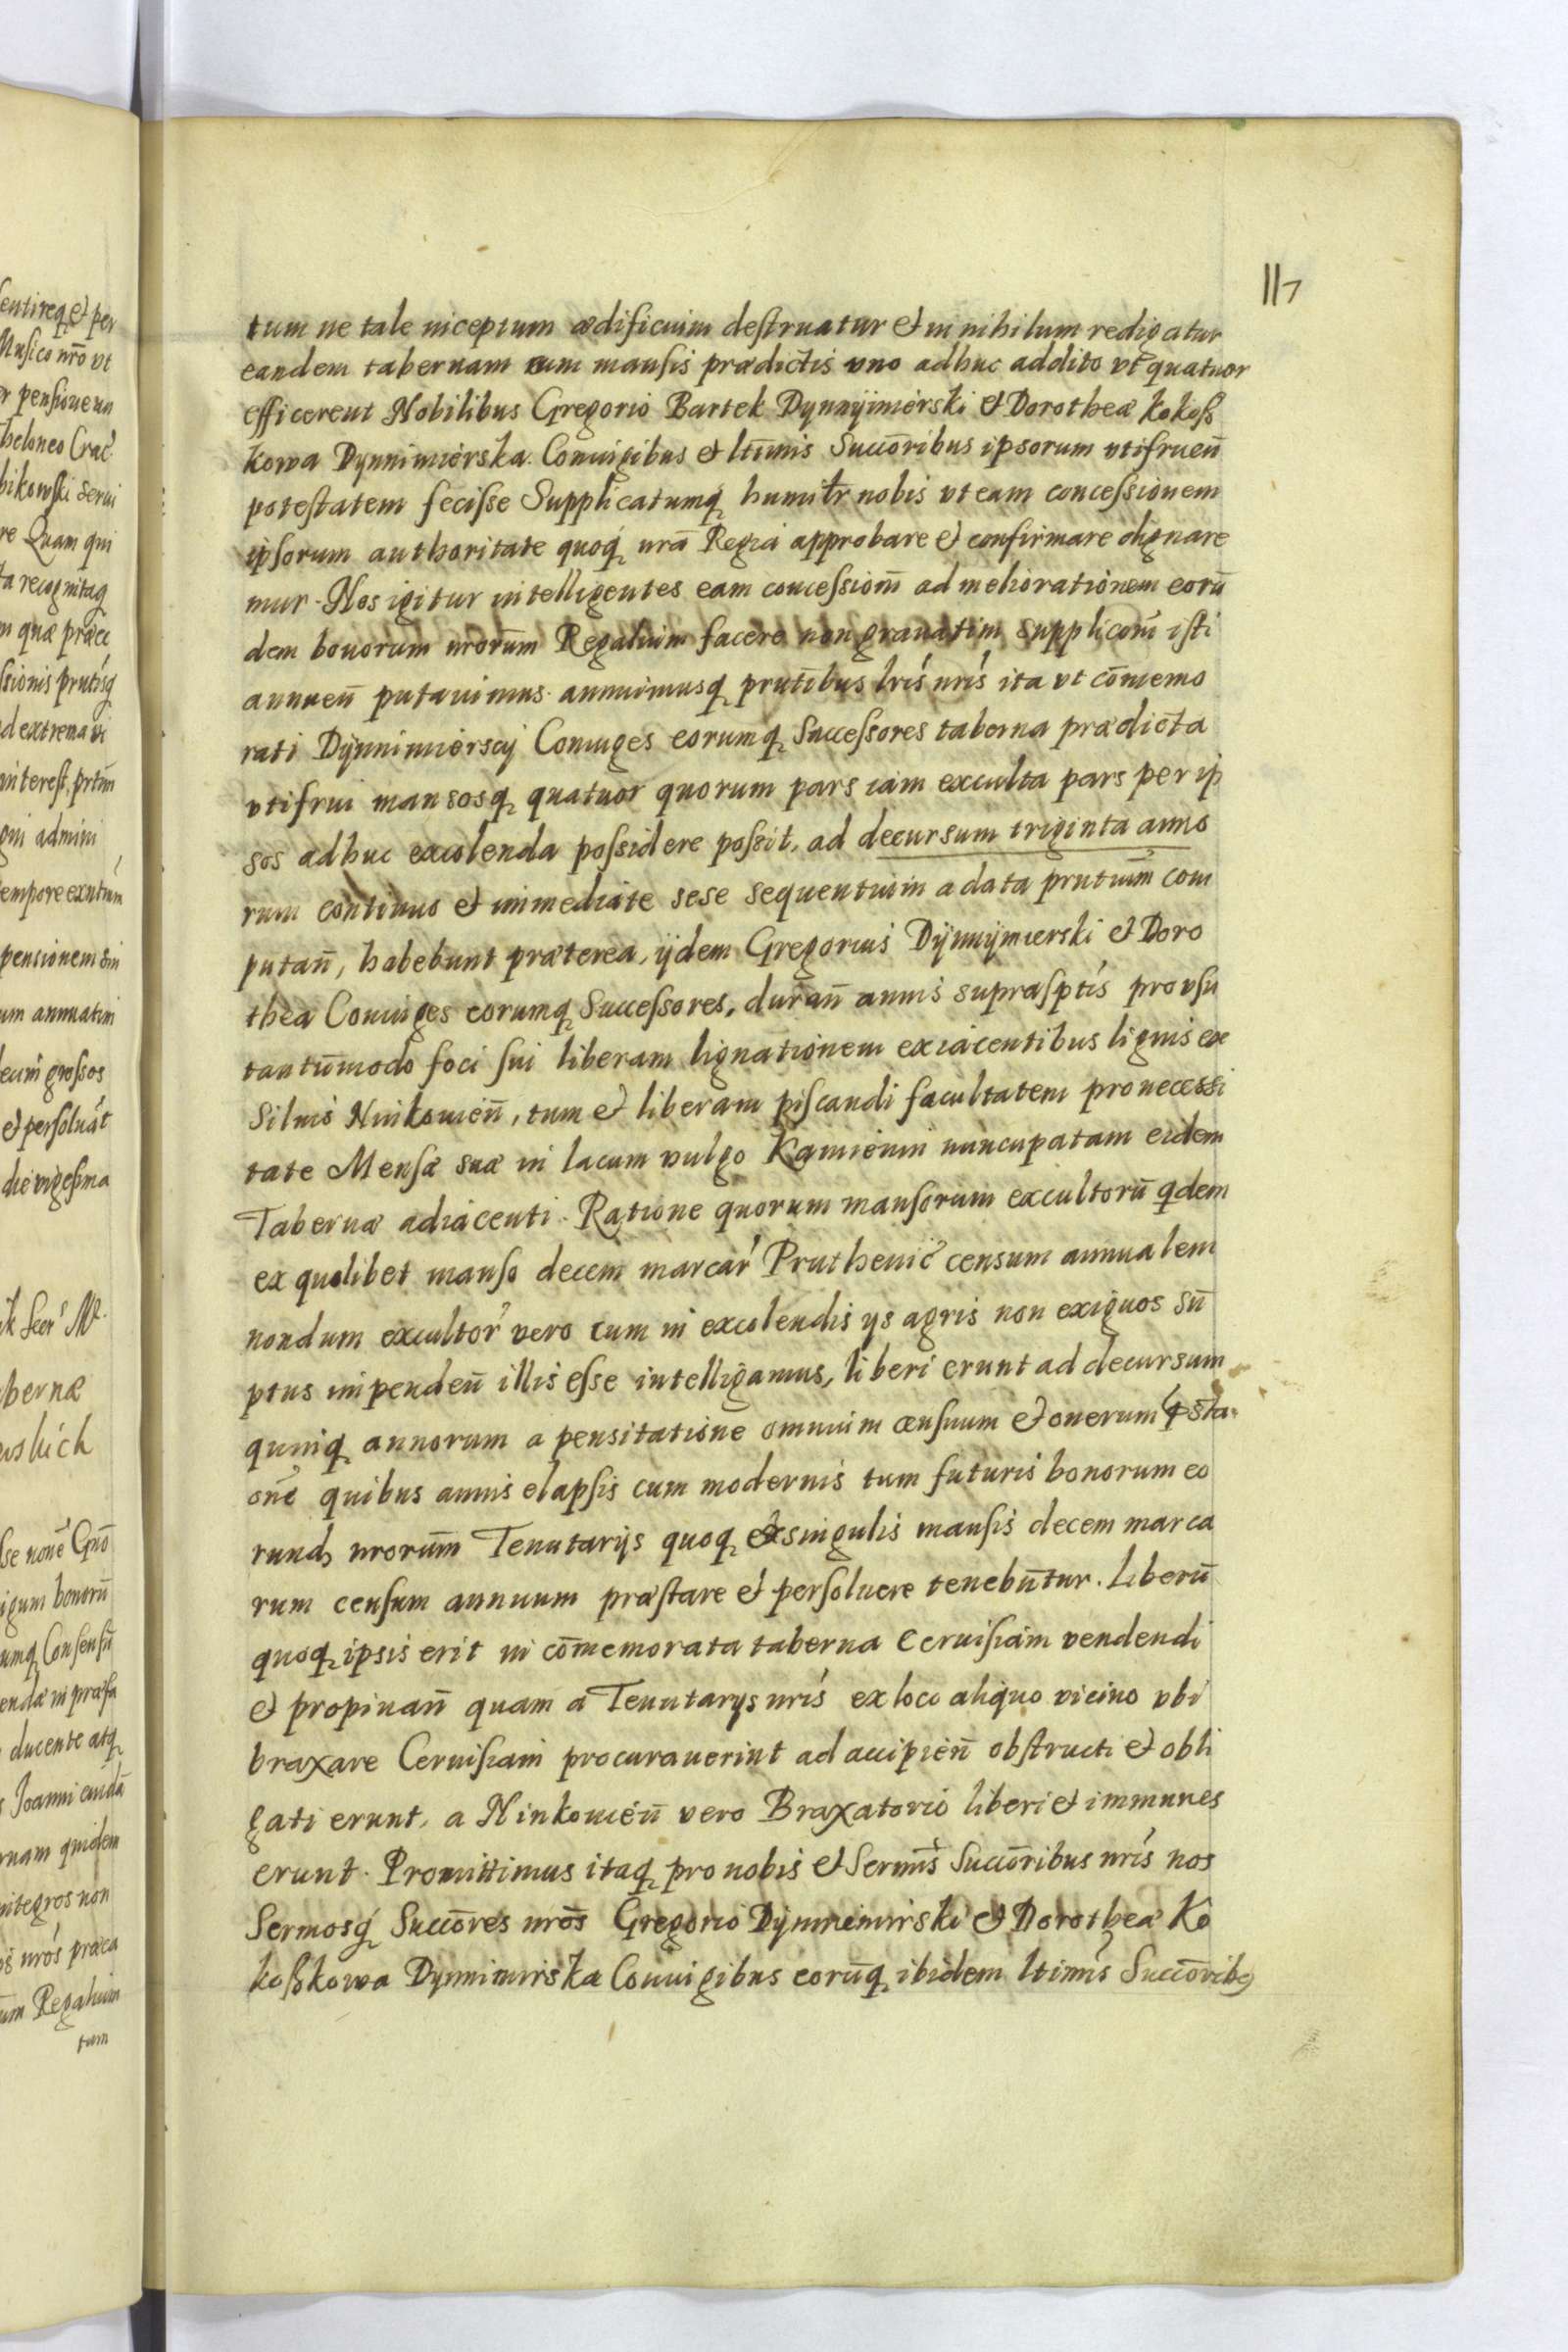 117
tum ne tale inceptum ædificium destruatur et in nihilum redigatur
eandem tabernam cum mansis prædictis vno adhuc addito vt quatuor
efficerent Nobilibus Gregorio Bartek Dynnÿmierski et Dorotheæ Kokosß
kowa Dynnimierska. Coniugibus et ltimis Succōribus ipsorum vtifrueñ
potestatem fecisse Supplicatumq̃ humiłr nobis vt eam concessionem
ipsorum authoritate quoq̃ nrā Regia approbare et confirmare dignare
mur. Nos igitur intelligentes eam concessiom̃ ad meliorationem eorū
dem bonorum nrorum̃ Regalium facere non grauatim supplicom̃ isti
annueñ putauimus. annuimusq̃ prntibus lris nris ita vt cōmemo
rati Dÿnnimierscÿ Coniuges eorumq̃ Successores taberna prædicta
vtifrui mansosq̃ quatuor quorum pars iam exculta pars per ip
sos adhuc excolenda possidere possit, ad decursum triginta anno
rum continuo et immediate sese sequentium a data prntium̃ com
putañ, habebunt præterea, ijdem Gregorius Dÿnnÿmierski et Doro
thea Coniuges eorumq̃ Successores, durañ annis suprasptis pro vsu
tantūmodo foci sui liberam lignationem ex iacentibus lignis ex
Siluis Ninkowieñ, tum et liberam piscandi facultatem pro necessi
tate Mensæ suæ in lacum vulgo Kamienin nuncupatam eidem
Tabernæ adiacenti. Ratione quorum mansorum excultorū qdem
ex quolibet manso decem marcar̃ Pruthenic̃ censum annualem
nondum excultor̃ vero cum in excolendis ys agris non exiguos sū
ptus impendeñ illis esse intelligamus, liberi erunt ad decursum
quinq̃ annorum a pensitatione omnium censuum et onerum pr̄sta-
one quibus annis elapsis cum modernis tum futuris bonorum eo
rund, nrorum̃ Tenutarijs quoq̃ ex singulis mansis decem marca
rum censum annuum præstare et persoluere tenebūtur. Liberū
quoq̃ ipsis erit in cōmemorata taberna Ceruisiam vendendi
et propinañ quam a Tenutarys nris ex loco aliquo vicino vbi
braxare Ceruisiam procurauerint ad accipieñ obstructi et obli
gati erunt, a Ninkowieñ vero Braxatorio liberi et immunes
erunt. Promittimus itaq̃ pro nobis et Sermis Succōribus nris nos
Sermosq̃ Succōres nros Gregorio Dÿnnimirski et Dorotheæ Ko
koßkowa Dynnimirska Coniugibus eorūq̃ ibidem ltimis Succōribꝰ